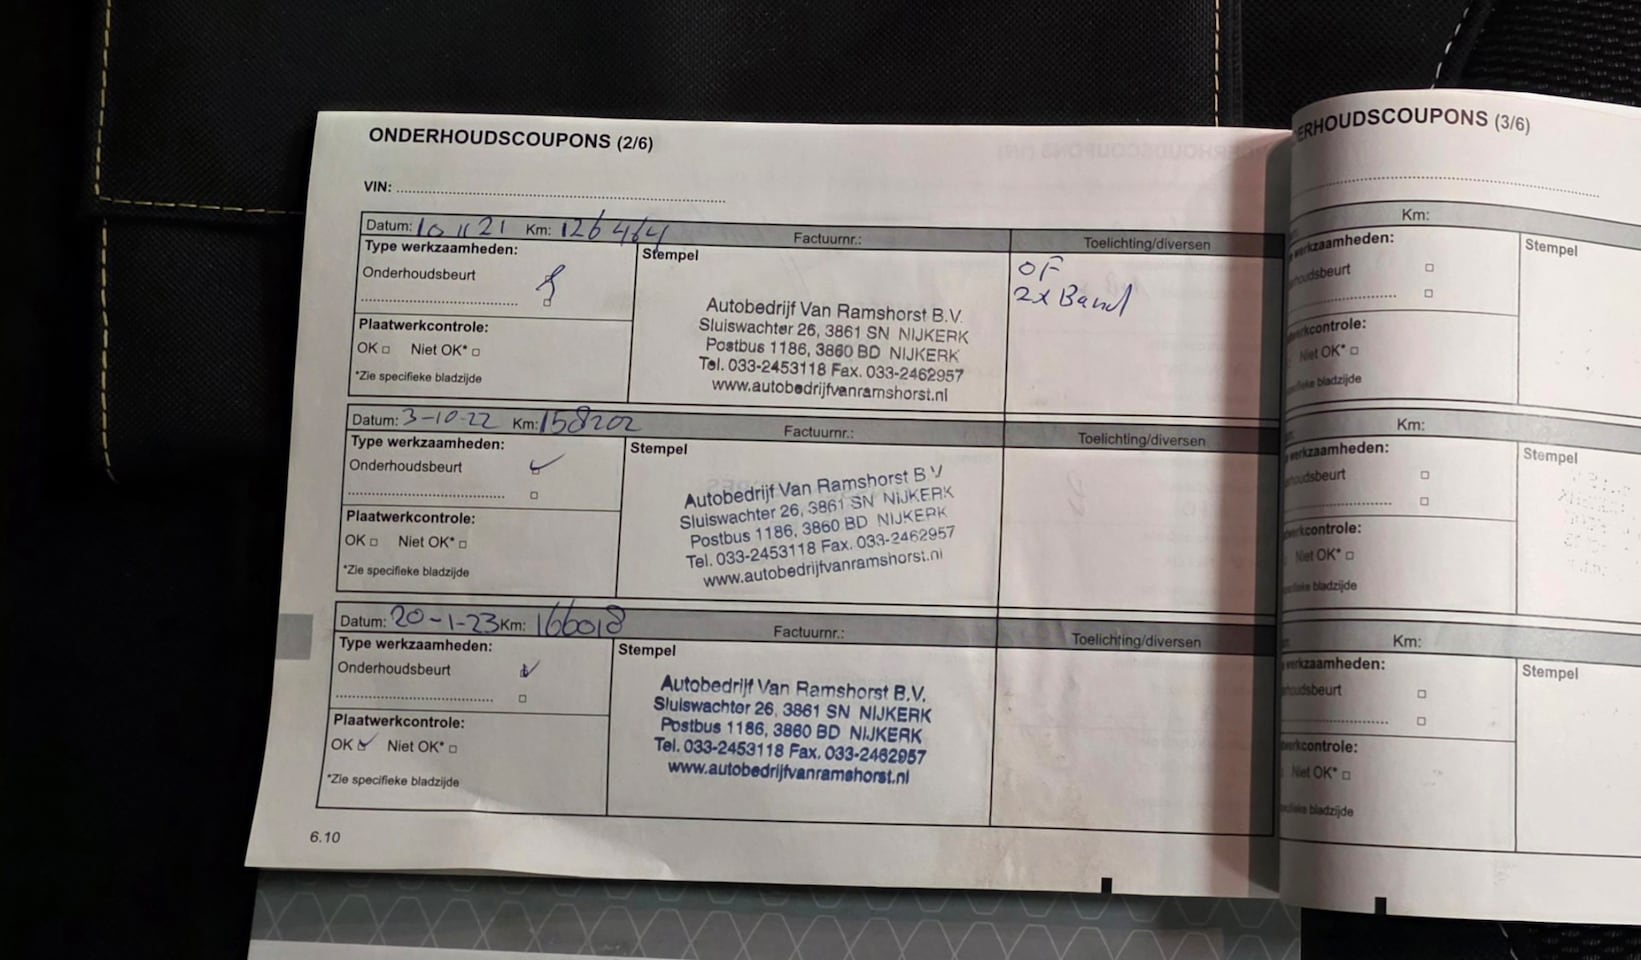 ONDERHOUDSCOUPONS (2/6)
VIN:
Datum: 10 11 21 Km: 126464 Factuurnr.: Toelichting/diversen
Type werkzaamheden:
Stempel
Onderhoudsbeurt
OF
2x Band
Autobedrijf Van Ramshorst B.V.
Sluiswachter 26, 3861 SN NIJKERK
Postbus 1186, 3860 BD NIJKERK
Tel. 033-2453118 Fax. 033-2462957
www.autobedrijfvanramshorst.nl
Plaatwerkcontrole:
OK Niet OK*
*Zie specifieke bladzijde
Datum: 3-10-22 Km: 158202 Factuurnr.: Toelichting/diversen
Type werkzaamheden:
Stempel
Onderhoudsbeurt
Autobedrijf Van Ramshorst B V
Sluiswachter 26, 3861 SN NIJKERK
Postbus 1186, 3860 BD NIJKERK
Tel. 033-2453118 Fax. 033-2462957
www.autobedrijfvanramshorst.nl
Plaatwerkcontrole:
OK Niet OK*
*Zie specifieke bladzijde
Datum: 20-1-23 Km: 166018 Factuurnr.: Toelichting/diversen
Type werkzaamheden:
Stempel
Onderhoudsbeurt
Autobedrijf Van Ramshorst B.V.
Sluiswachter 26, 3861 SN NIJKERK
Postbus 1186, 3860 BD NIJKERK
Tel. 033-2453118 Fax. 033-2462957
www.autobedrijfvanramshorst.nl
Plaatwerkcontrole:
OK Niet OK*
*Zie specifieke bladzijde
6.10
ERHOUDSCOUPONS (3/6)
Km:
werkzaamheden:
Stempel
houdsbeurt
erkcontrole:
Niet OK*
bladzijde
Km:
werkzaamheden:
Stempel
houdsbeurt
erkcontrole:
Niet OK*
bladzijde
Km:
werkzaamheden:
Stempel
houdsbeurt
erkcontrole:
Niet OK*
bladzijde